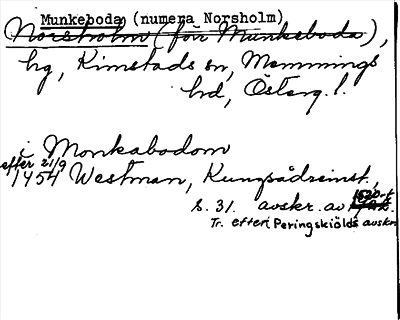 Munkeboda (numera Norsholm)
Norsholm (förr Munkeboda),
hg, Kimstads sn, Memmings
hrd, Österg. l.
i Monkabodom
efter 21/9
1454 Westman, Kungsådreinst.
s. 31. avskr. av 1520-t.
Tr. efter Peringskiölds avskr.